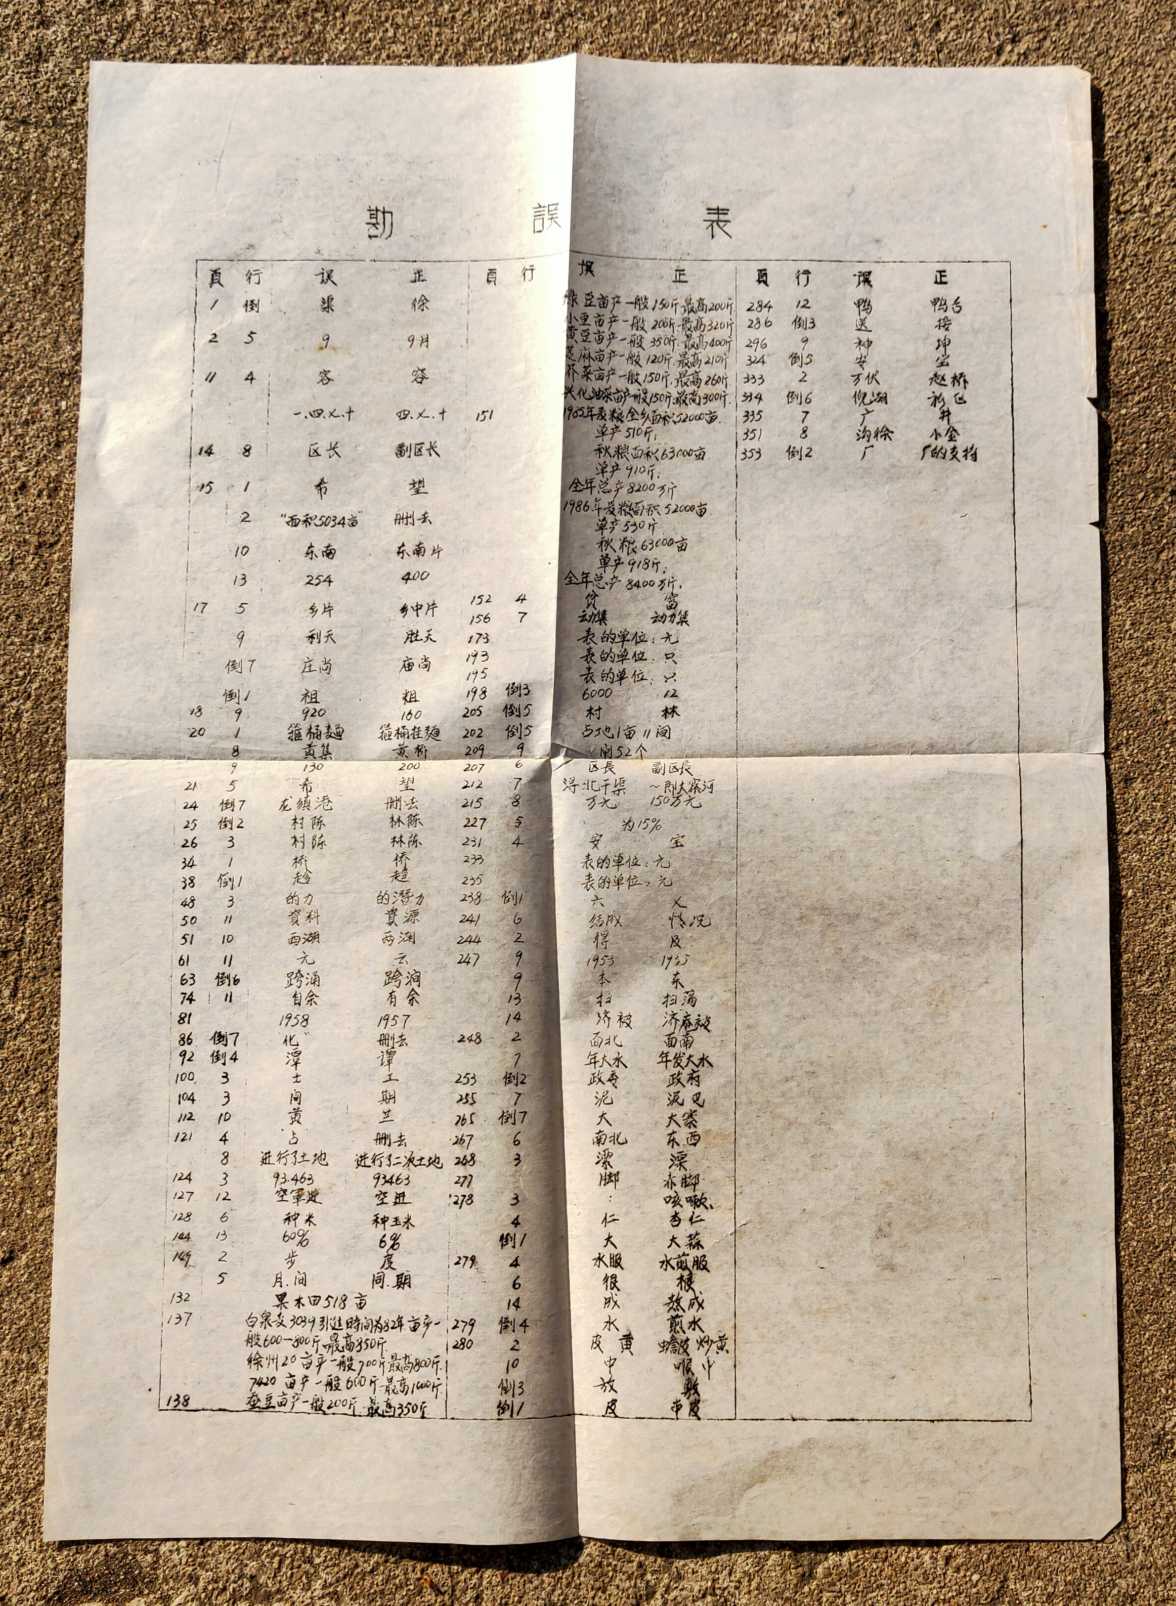 勘 誤 表
頁 行 误 正
1 倒 梁 徐
2 5 9 9月
11 4 容 容
一.四.乂.十 四.乂.十
14 8 区长 副区长
15 1 希 望
2 "面积5034亩" 删去
10 东南 东南片
13 254 400
17 5 乡片 乡中片
9 利天 胜天
倒7 庄尚 庙尚
倒1 祖 粗
18 9 920 160
20 1 箍桶麺 箍桶挂麺
8 黄集 黄桥
9 130 200
21 5 希 望
24 倒7 龙镇港 删去
25 倒2 村陈 林陈
26 3 村陈 林陈
34 1 桥 侨
38 倒1
48 3 的力 的潜力
50 11 資料 資源
51 10 西湖 西涧
61 11 元 云
63 倒6 跨涌 跨涧
74 11 自余 有余
81 1958 1957
86 倒7 化" 删去
92 倒4 潭 譚
100 3 士 工
104 3 间 期
112 10 黄 兰
121 4 占 删去
8 进行了土地 进行了二次土地
124 3 93.463 93463
127 12 空軍进 空进
128 6 种米 种玉米
144 13 60% 6%
149 2 步 度
5 月.间 同.期
132 果木田518亩
137 白泉麦3039引进时间为82年亩产一
般600—800斤.最高850斤
徐州20亩产一般700斤最高800斤
7420亩产一般600斤最高1000斤
138 蚕豆亩产一般200斤.最高350斤
頁 行 误 正
绿豆亩产一般150斤.最高200斤
小豆亩产一般200斤.最高320斤
黄豆亩产一般350斤.最高400斤
芝麻亩产一般120斤.最高210斤
亩产一般150斤.最高260斤
兴化油菜亩产一般150斤.最高300斤.
151 1985年麦粮全乡面积52000亩.
单产510斤.
秋粮面积63000亩
单产910斤.
全年总产8200万斤
1986年麦粮面积52000亩.
单产530斤
秋粮63000亩
单产918斤.
全年总产8400万斤.
152 4 贫 富
156 7 动集 动力集
173 表的单位:元
193 表的单位:只
195 表的单位:只
198 倒3 6000 12
205 倒5 村 林
202 倒5 占地1亩11间
209 9 52个
207 6 区長 副区長
212 7 浔北干渠 ~即大寨河
215 8 万元 150万元
227 5 为15%
231 4 安 宝
233 表的单位:元
235 表的单位:元
238 倒1 六 乂
241 6 结成 情况
244 2 得 及
247 9 1953 1955
9 本 东
13 扫 扫荡
14 济被 济庵被
248 2 西北 西南
7 年大水 年发大水
253 倒2 政寿 政府
255 7 泥
265 倒7 大 大寨
267 6 南北 东西
268 3 漂 溧
277 脚 赤脚
278 3 : 咳嗽、
4 仁 杏仁
倒1 大 大蒜
279 4 水服 水煎服
6 很 根
14 成 熬成
279 倒4 水 煎水
280 2 皮 黄 蟾皮 炒黄
10 中 喉中
倒3 放 敷
倒1 皮 带皮
頁 行 误 正
284 12 鸭 鸭舌
286 倒3 送 接
296 9 神 坤
324 倒5 安 宝
333 2 万伏 赵桥
334 倒6 倪湖
335 7 广 井
351 8 沟徐 小金
353 倒2 厂 厂的支持